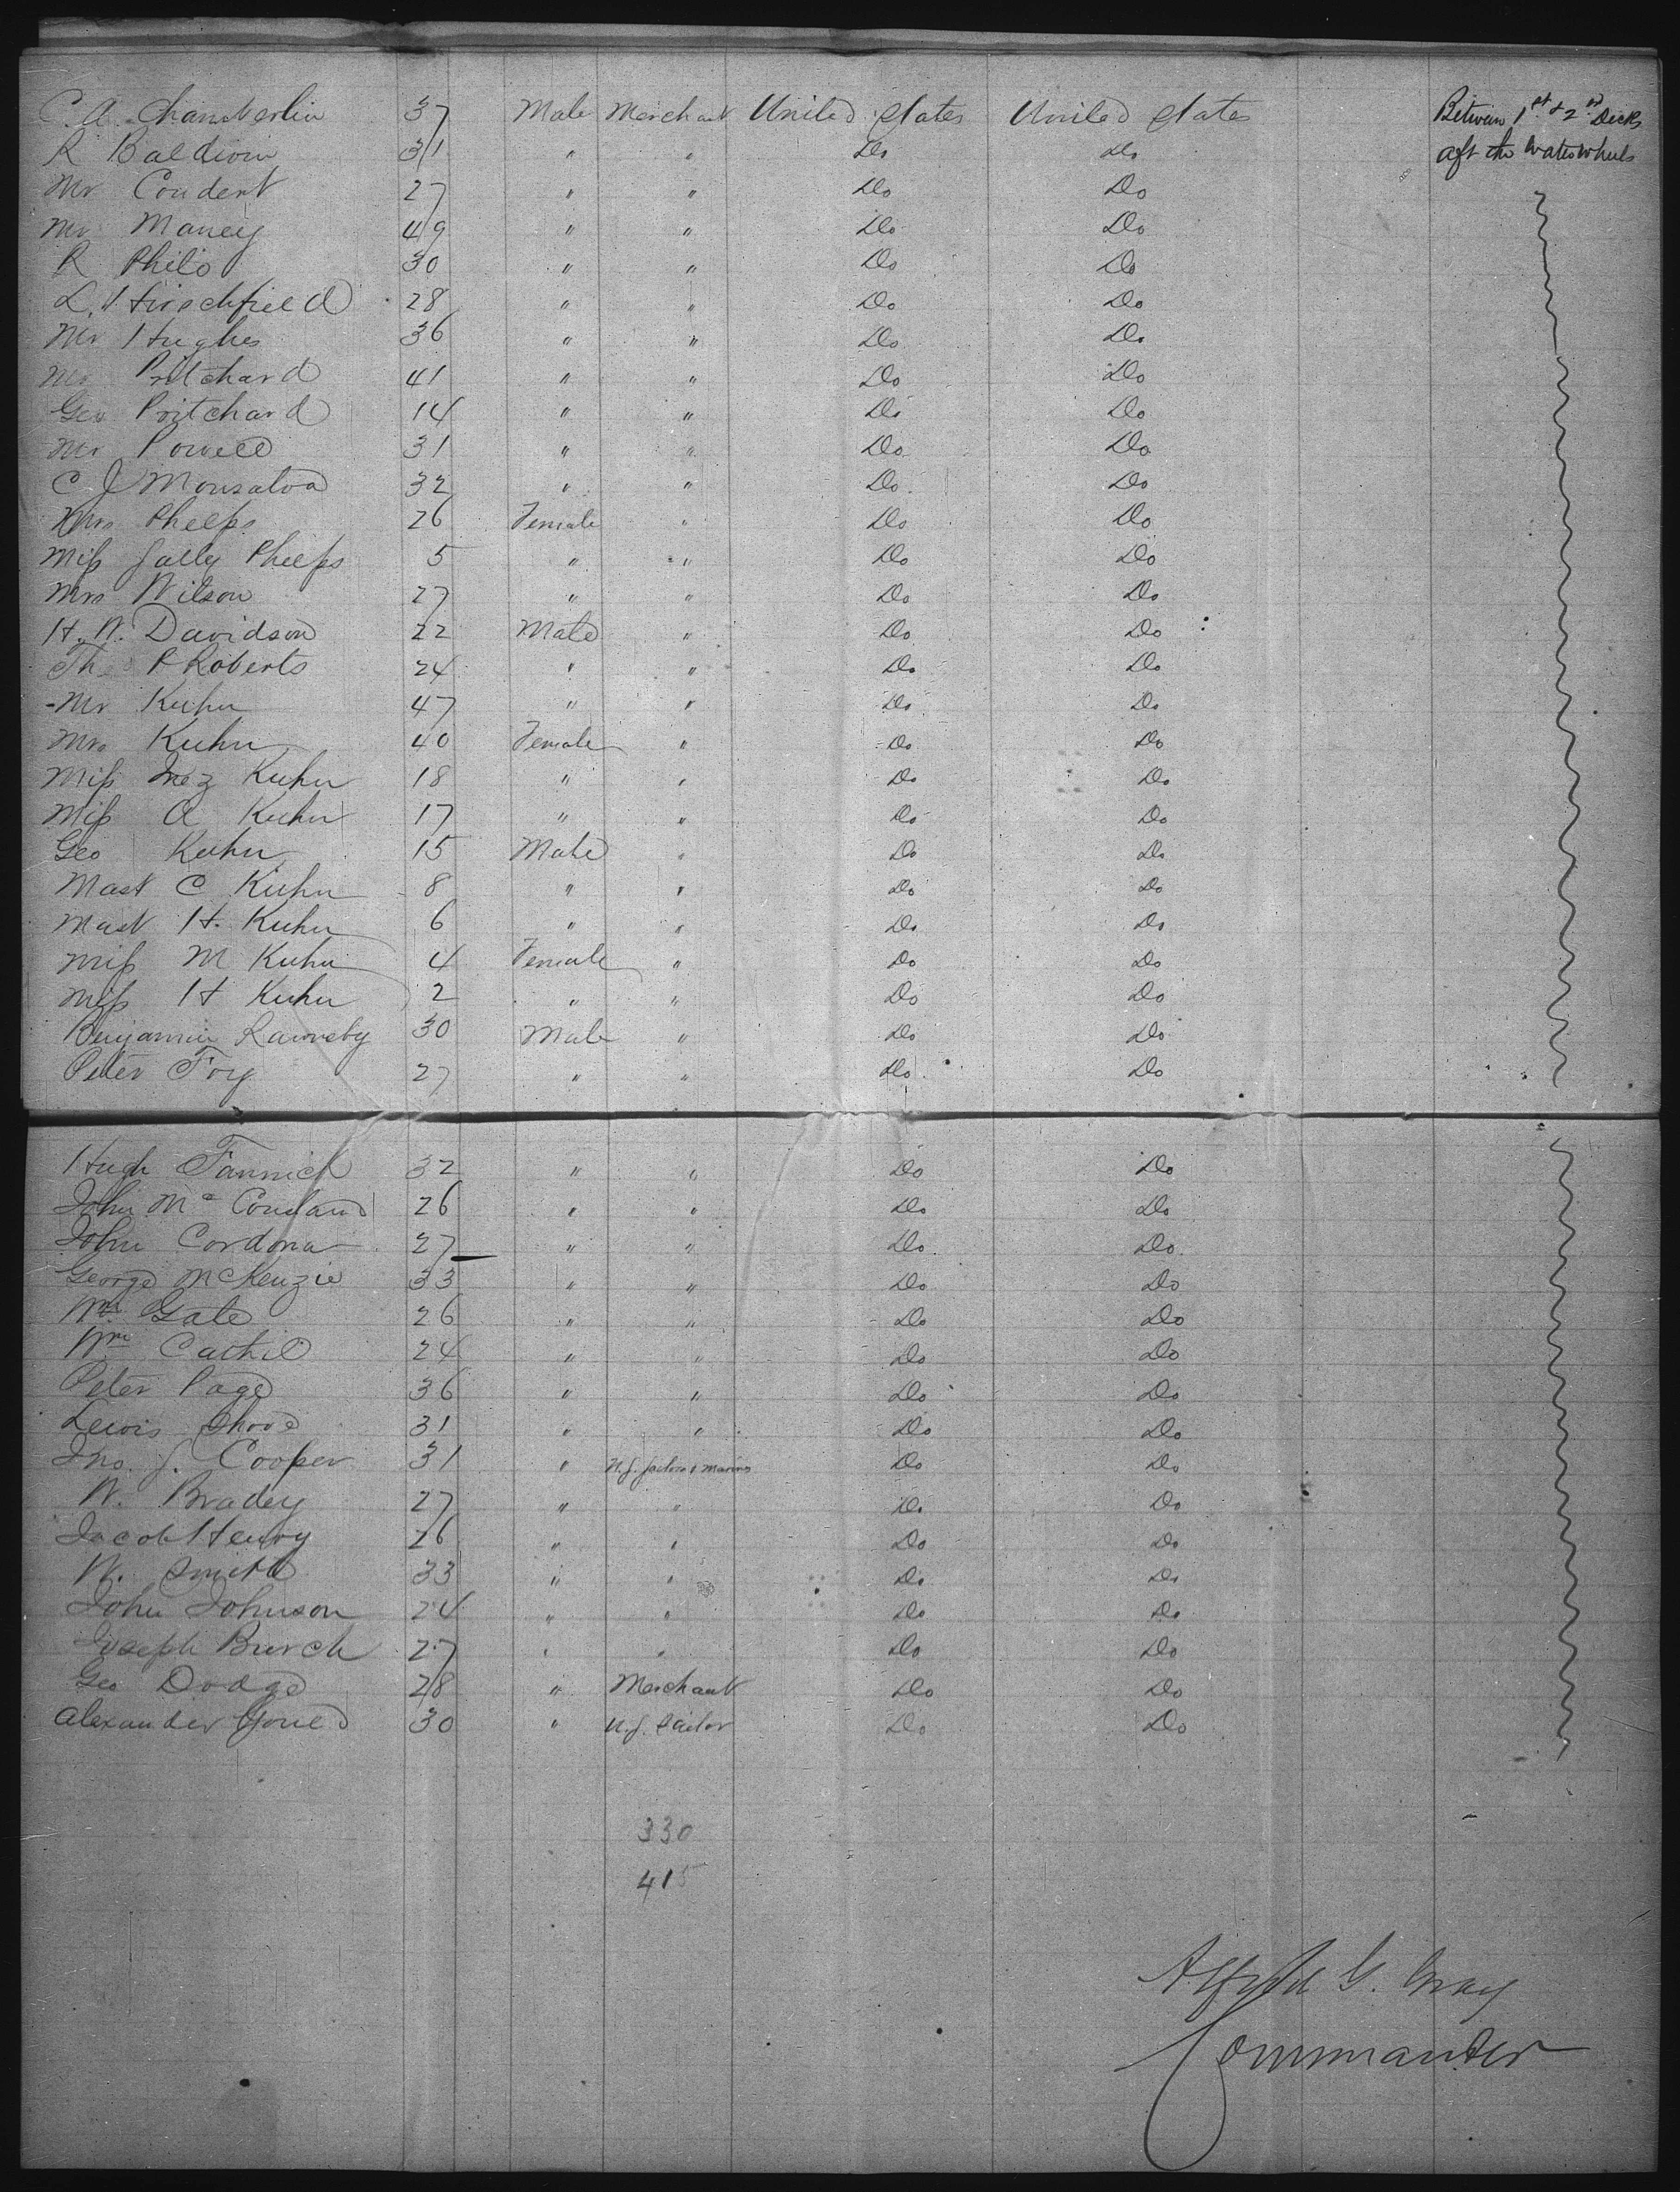 C. A. Chamberlin 37 Male Merchant United States United States Between 1st & 2nd Decks
R Baldwin 31 " " Do Do aft the Water Wheels
Mr Coudert 27 " " Do Do
Mr Maney 49 " " Do Do
R Philo 30 " " Do Do
L. Hirschfield 28 " " Do Do
Mr Hughes 36 " " Do Do
Mr Pritchard 41 " " Do Do
Geo Pritchard 14 " " Do Do
Mr Powell 31 " " Do Do
C J Monsalva 32 " " Do Do
Mrs Phelps 26 Female " Do Do
Miss Sally Phelps 5 " " Do Do
Mrs Wilson 27 " " Do Do
H. W. Davidson 22 Male " Do Do
Tho P Roberts 24 " " Do Do
Mr Kuhn 47 " " Do Do
Mrs Kuhn 40 Female " Do Do
Miss Inez Kuhn 18 " " Do Do
Miss A Kuhn 17 " " Do Do
Geo Kuhn 15 Male " Do Do
Mast C Kuhn 8 " " Do Do
Mast H. Kuhn 6 " " Do Do
Miss M Kuhn 4 Female " Do Do
Miss H Kuhn 2 " " Do Do
Benjamin Rawnsby 30 Male " Do Do
Peter Foy 27 " " Do Do
Hugh Fannich 32 " " Do Do
John Mc Couland 26 " " Do Do
John Cordona 27 " " Do Do
George McKenzie 33 " " Do Do
Wm Gate 26 " " Do Do
Wm Cathil 24 " " Do Do
Peter Page 36 " " Do Do
Lewis Shove 31 " " Do Do
Jno. S. Cooper 31 " U.S. Sailors & Marines Do Do
W. Bradey 27 " " Do Do
Jacob Henry 26 " " Do Do
W. Smith 33 " " Do Do
John Johnson 24 " " Do Do
Joseph Burch 27 " " Do Do
Geo Dodge 28 " Merchant Do Do
Alexander 30 " U.S. Sailor Do Do
330
415
Alfred G. Gray
Commander